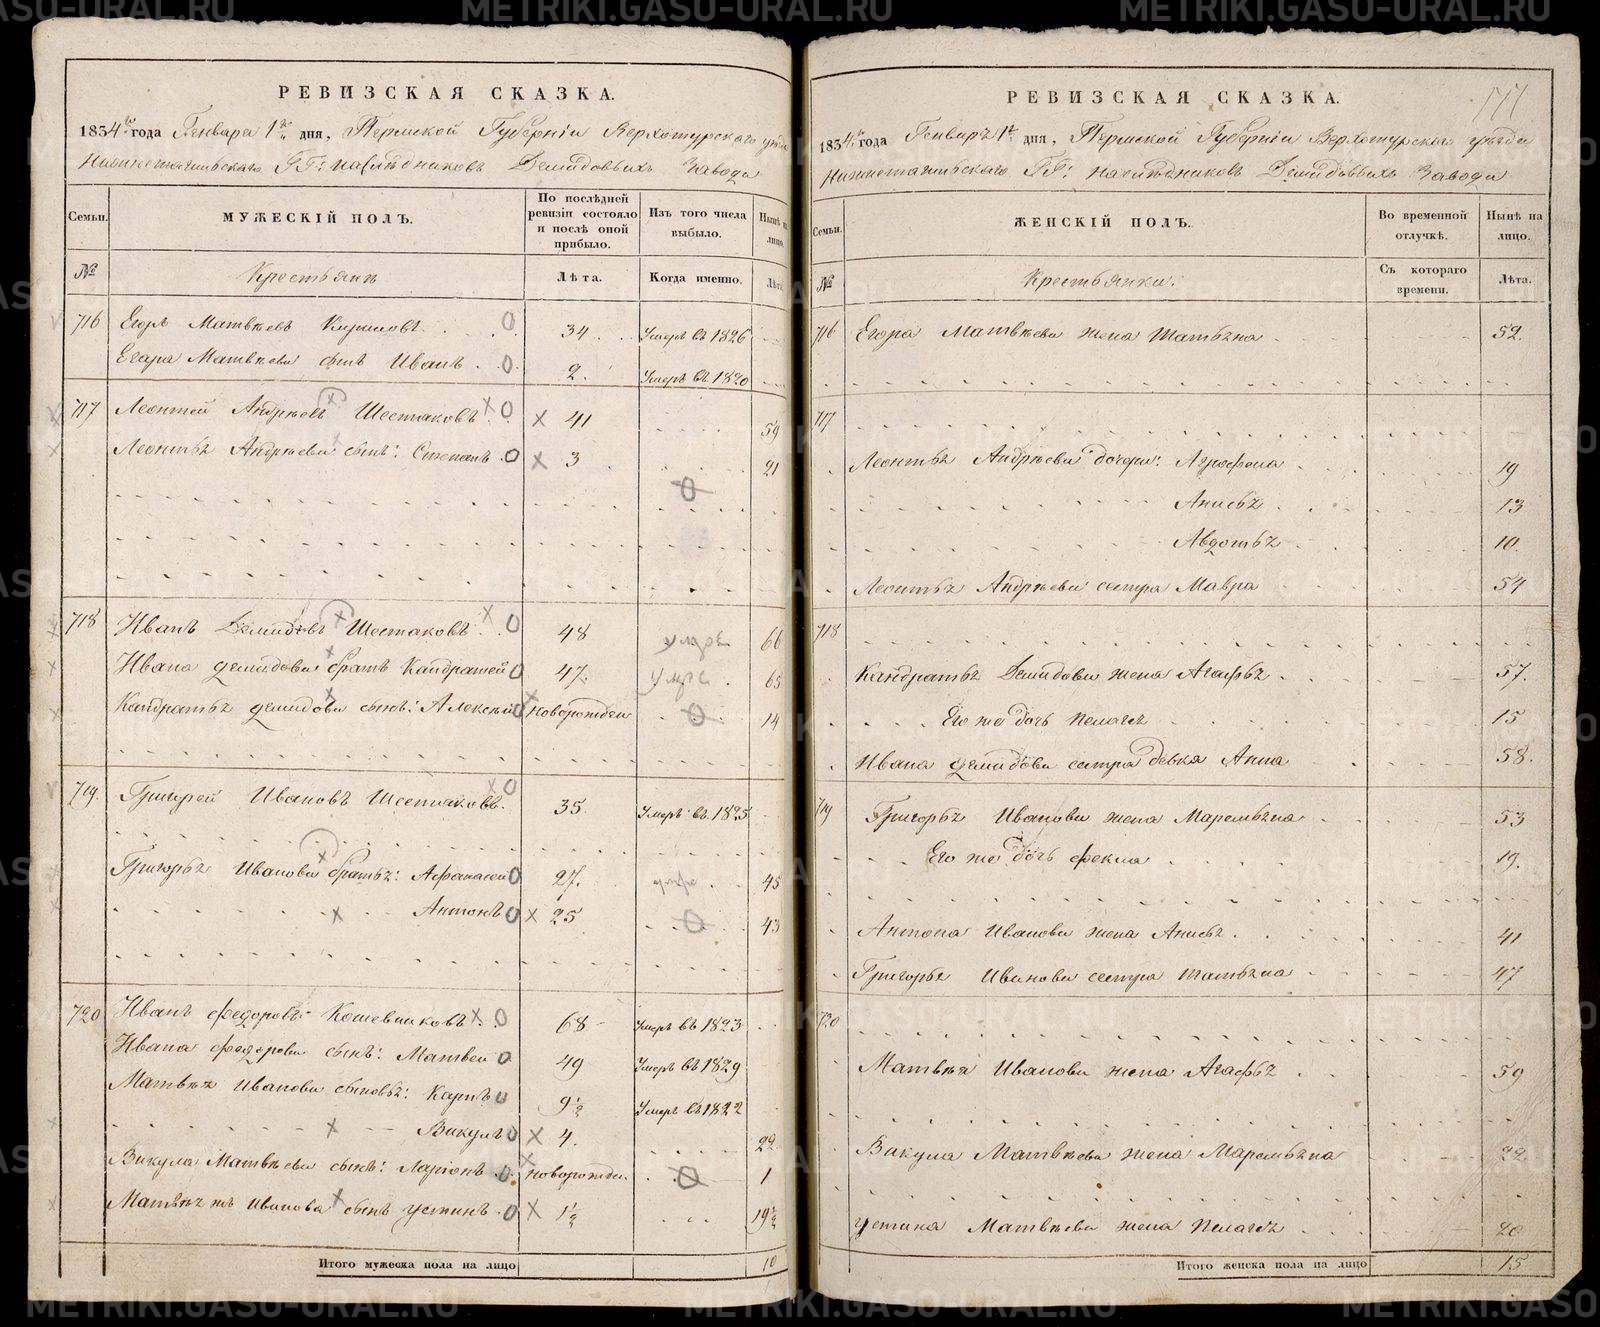 РЕВИЗСКАЯ СКАЗКА.
1834го года Генваря 1го дня, Пермской Губерніи Верхотурскаго уезда
Нижнетагильскаго ГГ: наследниковъ Демидовыхъ Завода
Семьи. МУЖЕСКІЙ ПОЛЪ. По послѣдней ревизіи состояло и послѣ оной прибыло. Изъ того числа выбыло. Нынѣ на лицо.
№ Крестьянъ Лѣта. Когда именно. Лѣта
716 Егоръ Матвеевъ 34 Умеръ въ 1826
Егора Матвеева сынъ Иванъ 2. Умеръ въ 1820
717 Леонтей Андреевъ Шестаковъ 41 59
Леонтья Андреева сынъ: Степанъ 3 21
718 Иванъ Демидовъ Шестаковъ 48 умеръ 66
Ивана Демидова братъ Кандратей 47. 65
Кандратья Демидова сынъ: Алексей новорожден 14
719. Григорей Ивановъ Шестаковъ. 35 Умеръ въ 1825
Григорья Иванова братья: Афанасей 27. 45
Антонъ 25 43
720 Иванъ Федоровъ Кошевниковъ 68 Умеръ въ 1823
Ивана Федорова сынъ: Матвей 49 Умеръ въ 1829
Матвея Иванова сыновья: Карпъ 9½ Умеръ въ 1822
Викулъ 4. 22
Викула Матвеева сынъ: Ларіонъ новорожден. 1
Матвея жъ Иванова сынъ Устинъ 1½ 19½
Итого мужеска пола на лицо 10
РЕВИЗСКАЯ СКАЗКА.
1834го года Генваря 1го дня, Пермской Губерніи Верхотурскаго уезда
Нижнетагильскаго ГГ: наследниковъ Демидовыхъ Завода
Семьи. ЖЕНСКІЙ ПОЛЪ. Во временной отлучкѣ. Нынѣ на лицо.
№ Крестьянки. Съ котораго времени. Лѣта.
716 Егора Матвеева жена Татьяна 52.
717
Леонтья Андреева дочери: Агрофена 19
Анисья 13
Авдотья 10
Леонтья Андреева сестра Мавра 54
718
Кандратья Демидова жена Агафья 57.
Его же дочь Пелагея 15
Ивана Демидова сестра девка Анна 58.
719 Григорья Иванова жена Маремьяна 53
Его же дочь Фекла 19.
Антона Иванова жена Анисья 41
Григорья Иванова сестра Татьяна 47
720
Матвея Иванова жена Агафья 59
Викула Матвеева жена Маремьяна 22
Устина Матвеева жена Пелагея 20
Итого женска пола на лицо 15
METRIKI.GASO-URAL.RU